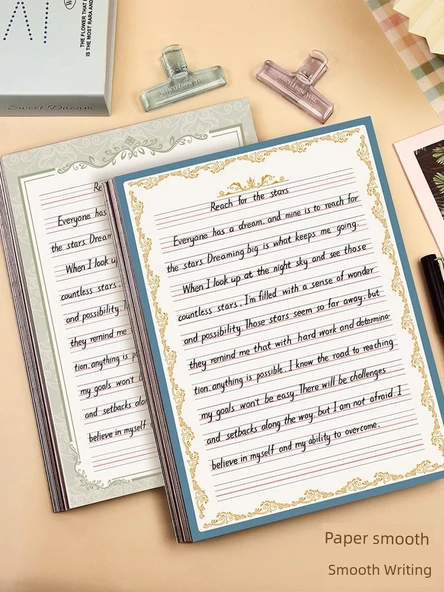 THE FLOWER THAT
IS THE MOST RARA AND
Sweet Dream
Re
Everyone has
the stars. Dream
When I look up
countless stars.
and possibility.
they remind me
tion, anything is p
my goals won't b
and setbacks alo
believe in myself
Reach for the stars
Everyone has a dream, and mine is to reach for
the stars. Dreaming big is what keeps me going.
When I look up at the night sky and see those
countless stars, I'm filled with a sense of wonder
and possibility. Those stars seem so far away, but
they remind me that with hard work and determina-
tion, anything is possible. I know the road to reaching
my goals won't be easy. There will be challenges
and setbacks along the way, but I am not afraid. I
believe in myself and my ability to overcome.
Paper smooth
Smooth Writing